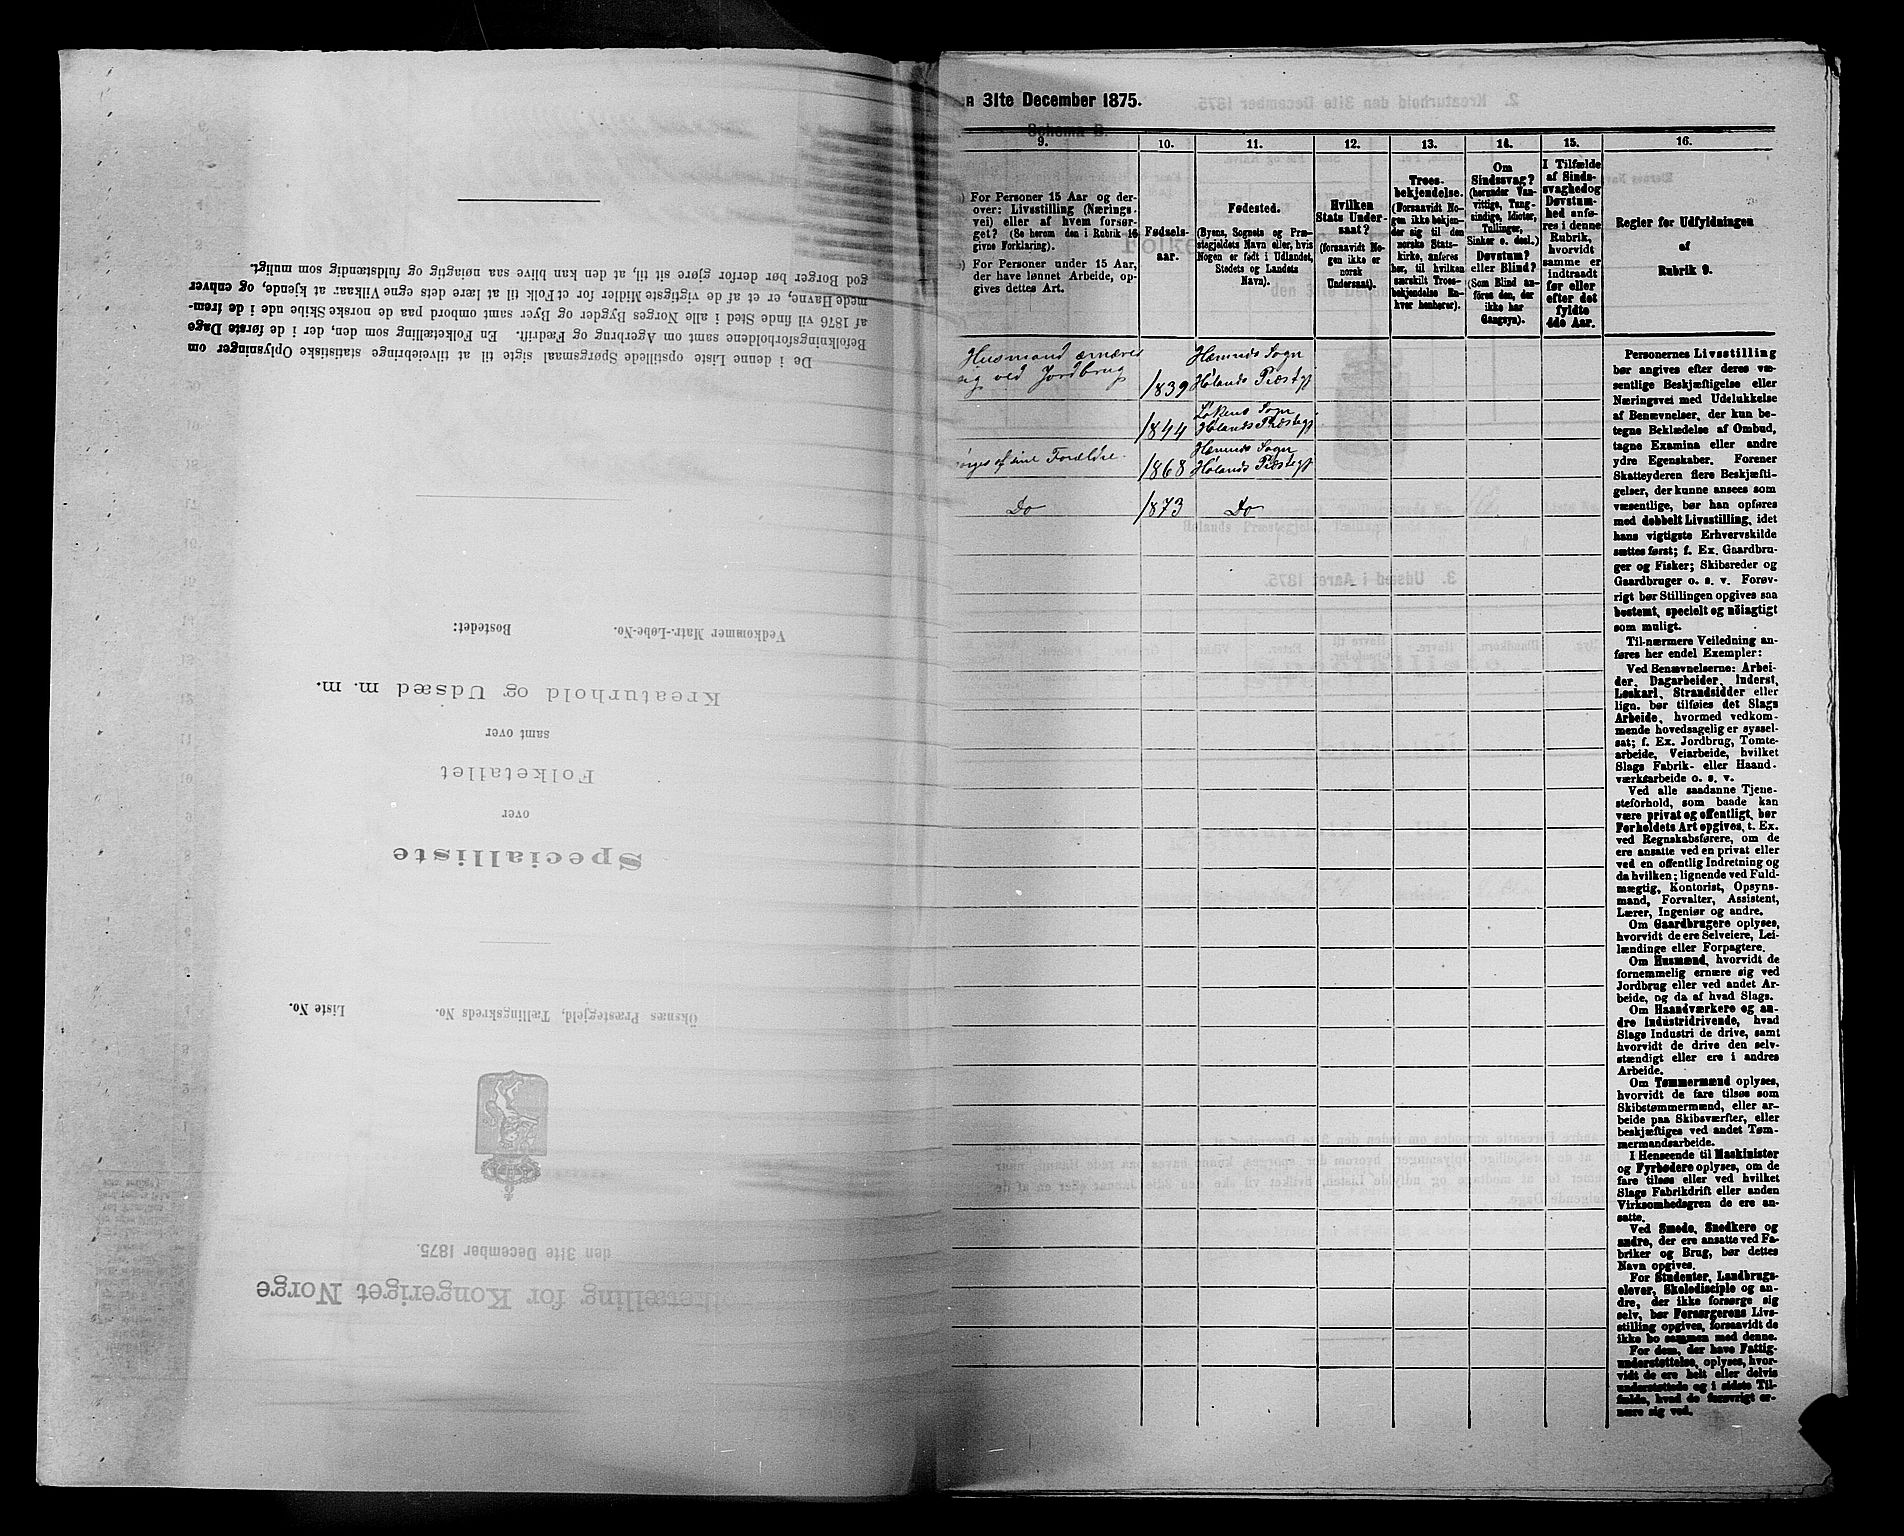 Folketælling for Kongeriget Norge
den 31te December 1875.
Öksnæs Præstegjeld, Tællingskreds No.
Liste No.
Specialliste
over
Folketallet
samt over
Kreaturhold og Udsæd m. m.
Vedkommer Matr.-Løbe-No.
Bostedet:
De i denne Liste opstillede Spørgsmaal sigte til at tilveiebringe statistiske Oplysninger om
Befolkningsforholdene samt om Agerbrug og Fædrift. En Folketælling som den, der i de første Dage
af 1876 vil finde Sted i alle Norges Bygder og Byer samt ombord paa de norske Skibe ude i de frem-
mede Havne, er et af de vigtigste Midler for et Folk til at lære dets egne Vilkaar at kjende, og enhver
god Borger bør derfor gjøre sit til, at den kan blive saa nøiagtig og fuldstændig som muligt.
en 31te December 1875.
Schema B.
9.
10.
11.
12.
13.
14.
15.
16.
For Personer 15 Aar og der-
over: Livsstilling (Nærings-
vei) eller af hvem forsør-
get? (Se herom den i Rubrik 16
givne Forklaring).
For Personer under 15 Aar,
der have lønnet Arbeide, op-
gives dettes Art.
Fødsels-
aar.
Fødested.
(Byens, Sognets og Præ-
stegjeldets Navn eller, hvis
Nogen er født i Udlandet,
Stedets og Landets
Navn).
Hvilken
Stats Under-
saat?
(forsaavidt No-
gen ikke er
norsk
Undersaat).
Troes-
bekjendelse.
(Forsaavidt No-
gen ikke bekjen-
der sig til den
norske Stats-
kirke, anføres
her, til hvilken
særskilt Troes-
bekjendelse En-
hver henhører).
Om
Sindssvag?
(herunder Van-
vittige, Tung-
sindige, Idioter,
Tullinger,
Sinker o. desl.)
Døvstum?
eller Blind?
(Som Blind an-
føres den, der
ikke har
Gangsyn).
I Tilfælde
af Sinds-
svaghedog
Døvstum-
hed anfø-
res i denne
Rubrik,
hvorvidt
samme er
indtraadt
før eller
efter det
fyldte
4de Aar.
Regler for Udfyldningen
af
Rubrik 9.
Husmand ernærer
sig ved Jordbrug
1839
Hemnes Sogn
Hølands Præstgj
1844
Løkens Sogn
Hølands Præstegj
sørges af sine Forældre.
1868
Hemnes Sogn
Hølands Præstegj
Do
1873
Do
Personernes Livsstilling
bør angives efter deres væ-
sentlige Beskjæftigelse eller
Næringsvei med Udelukkelse
af Benævnelser, der kun be-
tegne Beklædelse af Ombud,
tagne Examina eller andre
ydre Egenskaber. Forener
Skatteyderen flere Beskjæfti-
gelser, der kunne ansees som
væsentlige, bør han opføres
med dobbelt Livsstilling, idet
hans vigtigste Erhvervskilde
sættes først; f. Ex. Gaardbru-
ger og Fisker; Skibsreder og
Gaardbruger o. s. v. Forøv-
rigt bør Stillingen opgives saa
bestemt, specielt og nöiagtigt
som muligt.
Til nærmere Veiledning an-
føres her endel Exempler:
Ved Benævnelserne: Arbei-
der, Dagarbeider, Inderst,
Løskarl, Strandsidder eller
lign. bør tilføies det Slags
Arbeide, hvormed vedkom-
mende hovedsagelig er syssel-
sat; f. Ex. Jordbrug, Tomte-
arbeide, Veiarbeide, hvilket
Slags Fabrik- eller Haand-
værksarbeide o. s. v.
Ved alle saadanne Tjene-
steforhold, som baade kan
være privat og offentligt, bør
Forholdets Art opgives, t. Ex.
ved Regnskabsførere, om de
ere ansatte ved en privat eller
ved en offentlig Indretning og
da hvilken; lignende ved Fuld-
mægtig, Kontorist, Opsyns-
mand, Forvalter, Assistent,
Lærer, Ingeniør og andre.
Om Gaardbrugere oplyses,
hvorvidt de ere Selveiere, Lei-
lændinge eller Forpagtere.
Om Husmænd, hvorvidt de
fornemmelig ernære sig ved
Jordbrug eller ved andet Ar-
beide, og da af hvad Slags.
Om Haandværkere og an-
dre Industridrivende, hvad
Slags Industri de drive, samt
hvorvidt de drive den selv-
stændigt eller ere i andres
Arbeide.
Om Tømmermænd oplyses,
hvorvidt de fare tilsøs som
Skibstømmermænd, eller ar-
beide paa Skibsværfter, eller
beskjæftiges ved andet Tøm-
mermandsarbeide.
I Henseende til Maskinister
og Fyrbødere oplyses, om de
fare tilsøs eller ved hvilket
Slags Fabrikdrift eller anden
Virksomhedsgren de ere an-
satte.
Ved Smede, Snedkere og
andre, der ere ansatte ved Fa-
briker og Brug, bør dettes
Navn opgives.
For Studenter, Landbrugs-
elever, Skoledisciple og an-
dre, der ikke forsørge sig
selv, bør Forsørgerens Livs-
stilling opgives, forsaavidt de
ikke bo sammen med denne.
For dem, der have Fattig-
understøttelse, oplyses, hvor-
vidt de ere helt eller delvis
understøttede og i sidste Til-
fælde, hvad de forøvrigt er-
nære sig ved.